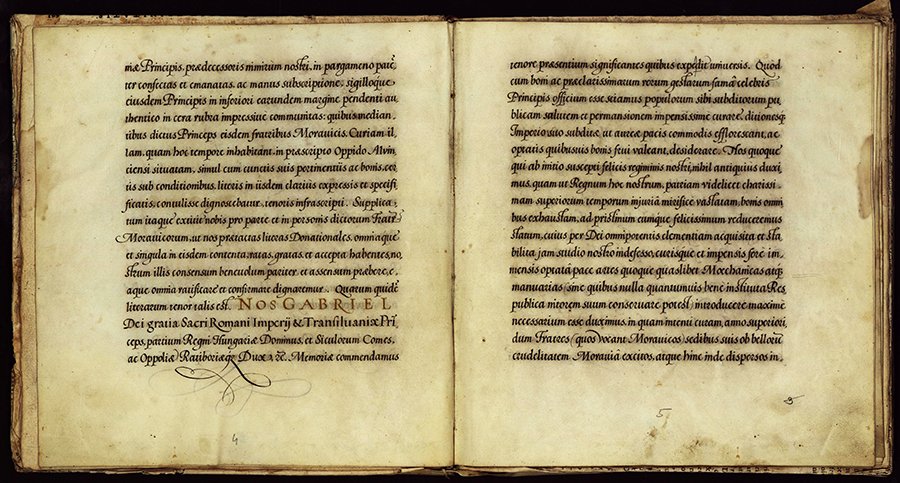 mæ Principis, prædecessoris nimirum nostri, in pargameno paten̄
ter confectas et emanatas, ac manus subscriptione, sigilloque
eiusdem Principis in inferiori earundem margine pendenti au
thentico in cera rubra impressiue communitas: quibus median,
tibus dictus Princeps eisdem fratribus Morauicis, Curiam il,
lam, quam hoc tempore inhabitant, in præscripto Oppido Alvin,
ciensi situatam, simul cum cunctis suis pertinentijs ac bonis, cer
tis sub conditionibus, literis in ijsdem clarius expressis et specifi
ficatis, contulisse dignoscebatur, tenoris infrascripti. Supplica,
tum itaque extitit nobis pro parte et in personis dictorum Fratrū
Morauicorum, ut nos prætactas literas Donationales, omniaque
et singula in eisdem contenta, ratas, gratas, et accepta habentes, no,
strum illis consensum beneuolum pariter et assensum præbere, e,
aque omnia ratificare et confirmare dignaremur. Quarum quidē
literarum tenor talis est. NOS GABRIEL
Dei gratia Sacri Romani Imperij & Transiluaniæ Prī
ceps, partium Regni Hungariæ Dominus, et Siculorum Comes,
ac Oppoliæ Ratiboriæq; Dux &c. Memoriæ commendamus
4
tenore præsentium significantes quibus expedit universis. Quod
cum boni ac præclarissimarum rerum gestarum fama celebris
Principis officium esse sciamus populorum sibi subditorum pu,
blicam salutem et permansionem impensissime curare, ditionesq;
Imperio suo subditæ ut aureæ pacis commodis efflorescant, ac
optatis quibusuis bonis frui valeant, desiderare. Nos quoque
qui ab initio suscepti felicis regiminis nostri, nihil antiquius duxi
mus, quam ut Regnum hoc nostrum, patriam videlicet charissi,
mam superiorum temporum injuria mirifice vastatam, bonis omni
bus exhaustam, ad pristinum eumque felicissimum reduceremus
statum, cuius per Dei omnipotentis clementiam acquisita et sta,
bilita jam studio nostro indefesso, curisque et impensis fere im,
mensis optata pace artes quoque quaslibet Mechanicas atq;
manuarias, sine quibus nulla quantumuis bene instituta Res,
publica nitorem suum conseruare potest, introducere maxime
necessarium esse duximus, in quam intenti curam, anno superiori,
dum Fratres (quos vocant Morauicos) sedibus suis ob bellorū
crudelitatem Morauiâ excitos, atque hinc inde dispersos in,
5
3